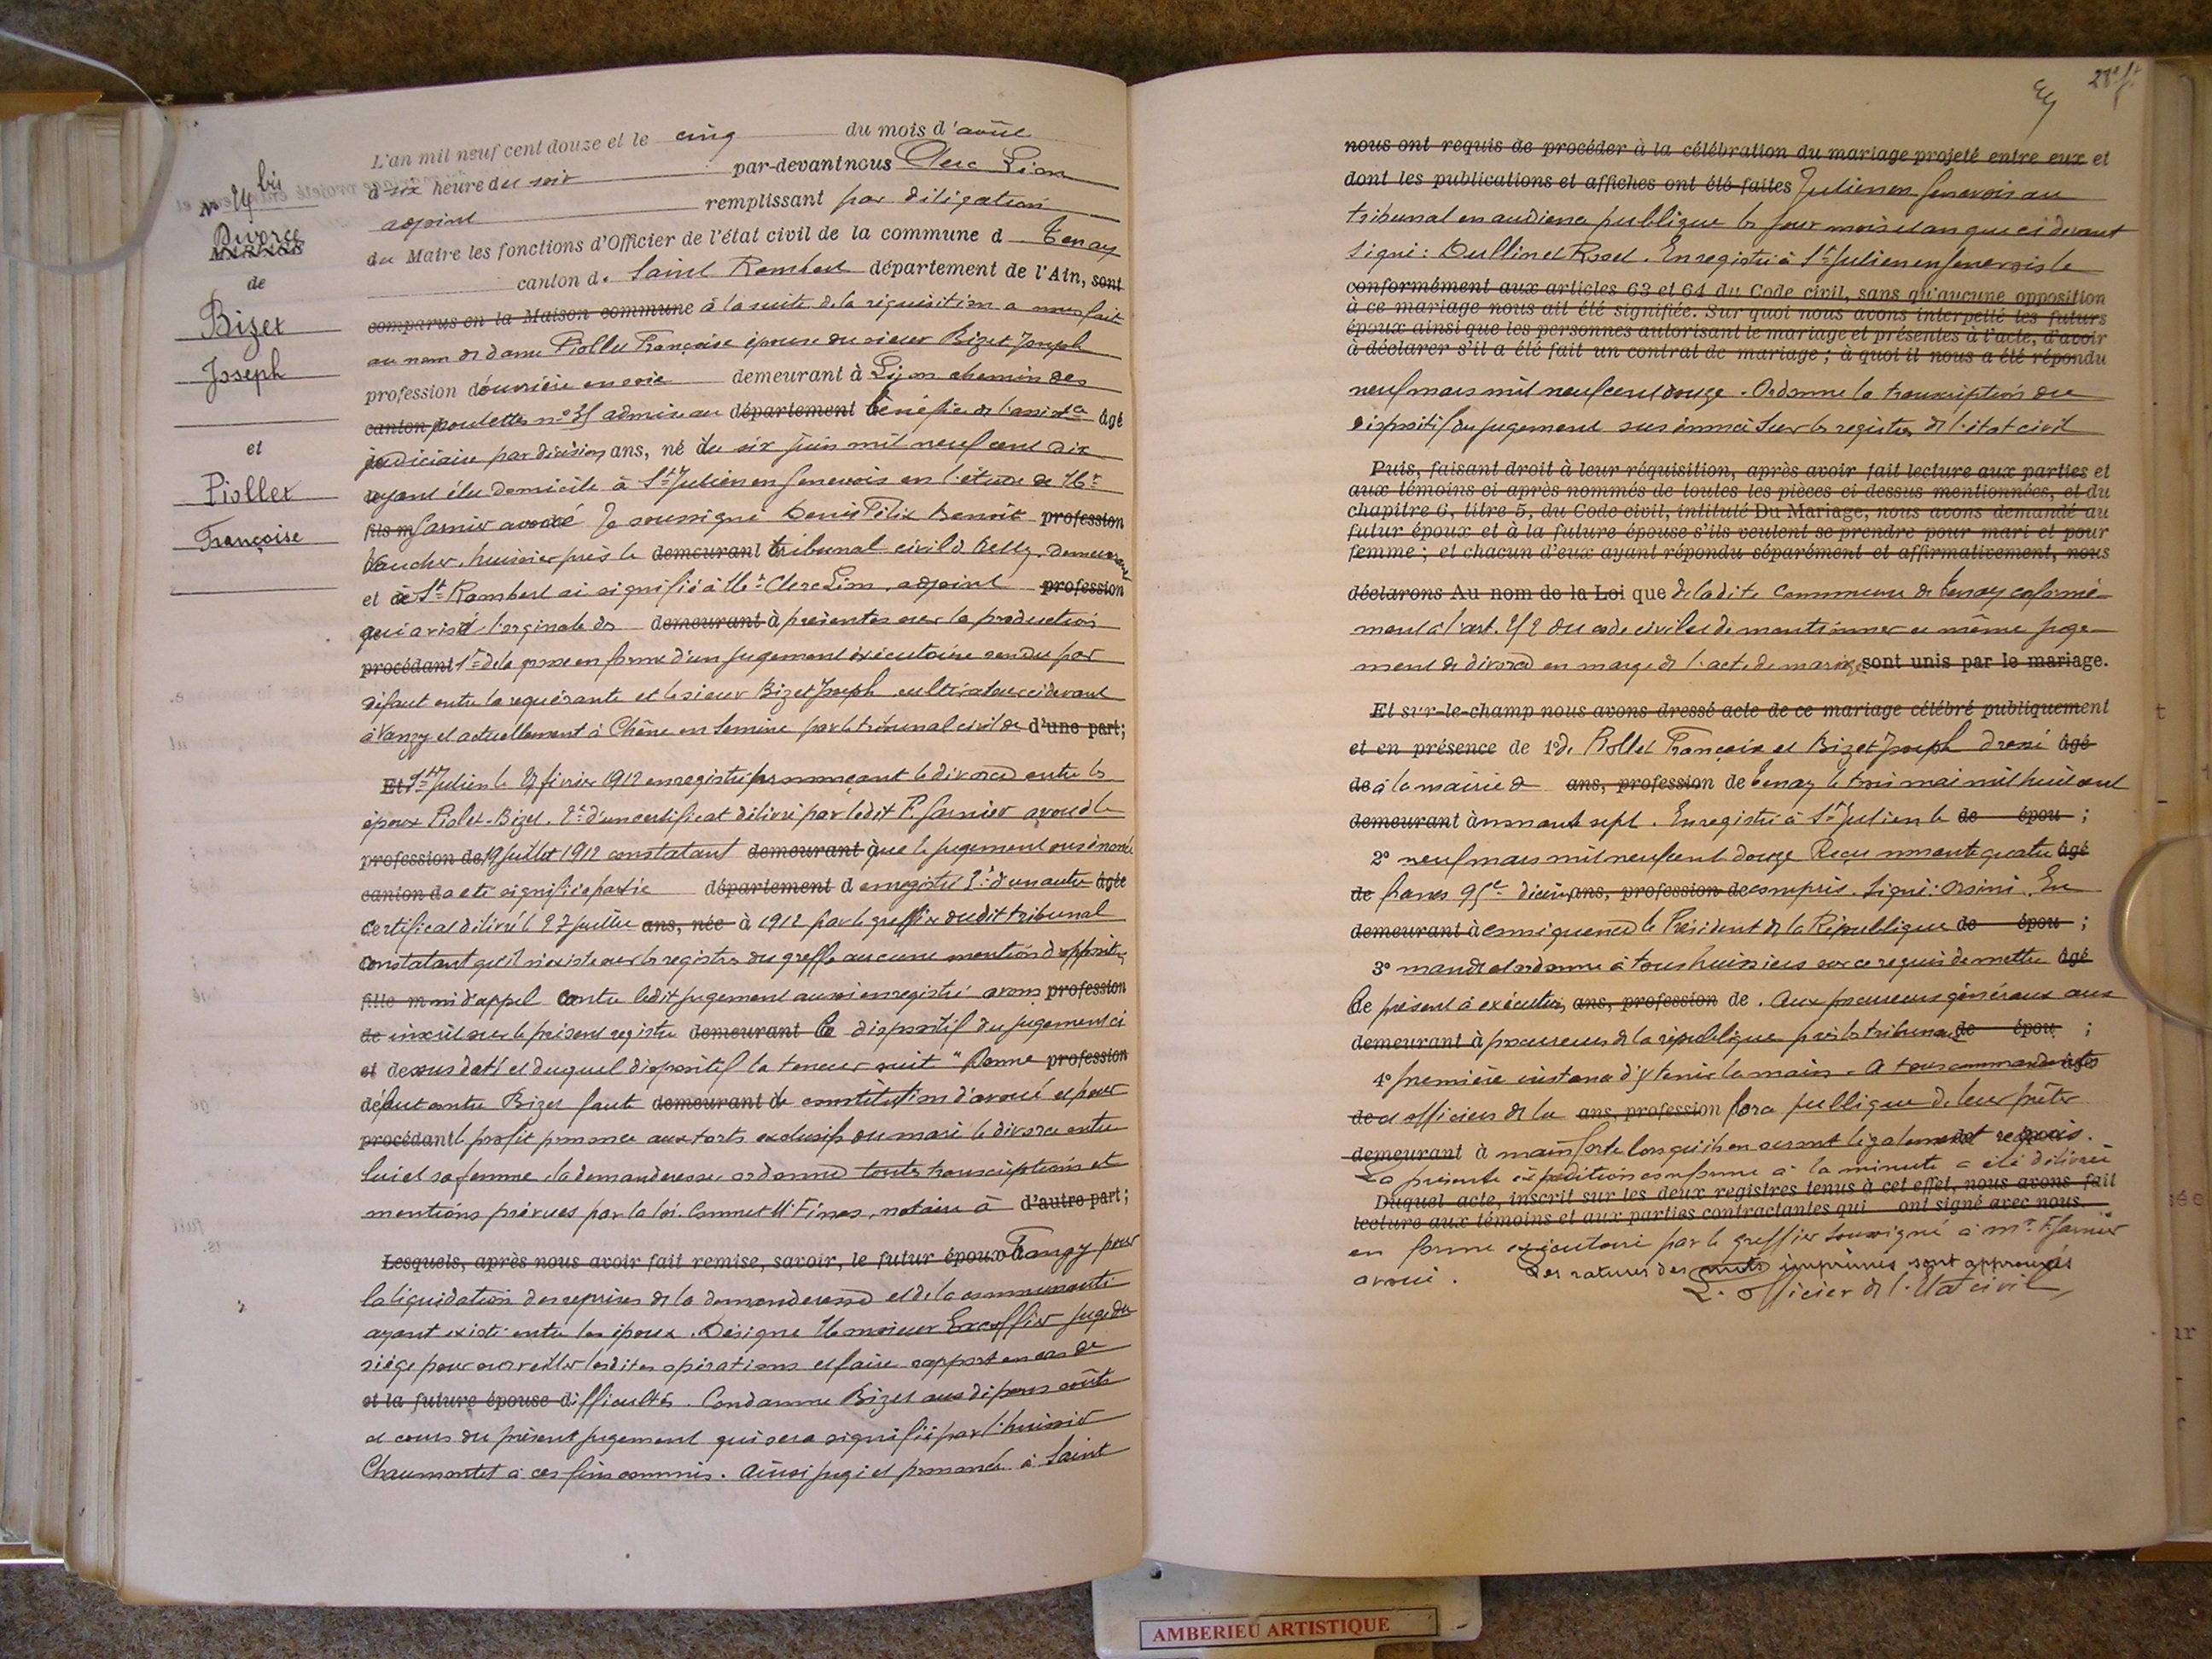 N° 24 bis
Divorce
de
Bizet
Joseph
et
Piollet
Françoise
L'an mil neuf cent douze et le cinq du mois d'août
à six heure du soir par-devant nous Clerc Léon
adjoint remplissant par délégation
du Maire les fonctions d'Officier de l'état civil de la commune d Tenay
canton d. Saint Rambert département de l'Ain, sont
comparus en la Maison commune à la suite de la réquisition a nous fait
au nom de dame Piollet Françoise épouse du sieur Bizet Joseph
profession d'ouvrière en soie demeurant à Lyon chemin des
canton poulettes n° 35 admise au département bénéfice de l'assistce âgé
judiciaire par décision ans, né du six juin mil neuf cent dix
ayant élu domicile à St Julien en Genevois en l'étude de Me
fils m Garnier avoué Je soussigné Denis Félix Benoît profession
Vaucher, huissier près le demeurant tribunal civil de Belley, demeurant
et à St Rambert ai signifié à Mr Clerc Léon, adjoint profession
qui a visé l'orginale des demeurant à présentes avec la production
procédant 1° de la grosse en forme d'un jugement éxécutoire rendu par
défaut entre la requérante et le sieur Bizet Joseph cultivateur ci devant
à Vanzy et actuellement à Chêne en Semine par le tribunal civil de d'une part;
Et St Julien le 27 février 1912 enregistré prononçant le divorce entre les
époux Piolet-Bizet. 2° d'un certificat délivré par ledit P. Garnier avoué le
profession de 19 Juillet 1912 constatant demeurant à que le jugement susénoncé
canton d a été signifié partie département d enregistré 3° d'un autre âgée
certificat délivré le 27 juillet ans, née à 1912 par le greffier dudit tribunal
constatant qu'il n'existe sur les registres du greffe aucune mention d'opposition
fille m ni d'appel contre ledit jugement aussi enregistré avons profession
de inscrit sur le présent registre demeurant le dispositif du jugement ci
et dessus daté et duquel dispositif la teneur suit " Donne profession
défaut contre Bizet faute demeurant de constitution d'avoué et pour
procédant le profit prononce aux torts exclusifs du mari le divorce entre
lui et sa femme, la demanderesse, ordonne toutes transcriptions et
mentions prévues par la loi. Commet Me Fines, notaire à d'autre part;
Lesquels, après nous avoir fait remise, savoir, le futur époux Frangy pour
la liquidation des reprises de la demanderesse et de la communauté
ayant existé entre les époux. Désigne Monsieur Excoffier juge du
siège pour surveiller lesdites opérations et faire rapport en cas de
et la future épouse difficultés. Condamne Bizet aux dépens coûts
et cours du présent jugement qui sera signifié par l'huissier
Chaumontet à ces fins commis. Ainsi jugé et prononcé à Saint
28e ft
nous ont requis de procéder à la célébration du mariage projeté entre eux et
dont les publications et affiches ont été faites Julien en Genevois au
tribunal en audience publique les jour mois et an que ci devant
signé: Dullin et Rosset. Enregistré à St Julien en Genevois le
conformément aux articles 63 et 64 du Code civil, sans qu'aucune opposition
à ce mariage nous ait été signifiée. Sur quoi nous avons interpellé les futurs
époux ainsi que les personnes autorisant le mariage et présentes à l'acte, d'avoir
à déclarer s'il a été fait un contrat de mariage ; à quoi il nous a été répondu
neuf mars mil neuf cent douze. Ordonne la transcription du
dispositif du jugement sus énoncé sur les registres de l'état civil
Puis, faisant droit à leur réquisition, après avoir fait lecture aux parties et
aux témoins ci après nommés de toutes les pièces ci dessus mentionnées, et du
chapitre 6, titre 5, du Code civil, intitulé Du Mariage, nous avons demandé au
futur époux et à la future épouse s'ils veulent se prendre pour mari et pour
femme ; et chacun d'eux ayant répondu séparément et affirmativement, nous
déclarons Au nom de la Loi que de ladite Commune de Tenay coformé-
ment à l'art. 252 du code civil et de mentionner ce même juge-
ment de divorce en marge de l'acte de mariage sont unis par le mariage.
Et sur-le-champ nous avons dressé acte de ce mariage célébré publiquement
et en présence de 1° de Piollet Françoise et Bizet Joseph dressé âgé
de à la mairie de ans, profession de Tenay le trois mai mil huit cent
demeurant à nonante sept. Enregistré à St Julien le de épou ;
2° neuf mars mil neuf cent douze Reçu nonante quatre âgé
de francs 95c décimes ans, profession de compris. Signé: Orsini. En
demeurant à conséquence le Président de la République de épou ;
3° mande et ordonne à tous huissiers sur ce requis de mettre âgé
le présent à exécution, ans, profession de . Aux procureurs généraux aux
demeurant à procureurs de la république près les tribunaux de épou ;
4° première instance d'y tenir la main. A tous commandants âgé
de et officiers de la ans, profession force publique de leur prêter
demeurant à main forte lorsqu'ils en seront légalement requis.
La présente expédition conforme à la minute a été délivrée
Duquel acte, inscrit sur les deux registres tenus à cet effet, nous avons fait
lecture aux témoins et aux parties contractantes qui ont signé avec nous.
en forme exécutoire par le greffier soussigné à Mr F. Garnier
avoué. Les ratures des mots imprimés sont approuvés
L'officier de l'Etat civil,
AMBERIEU ARTISTIQUE